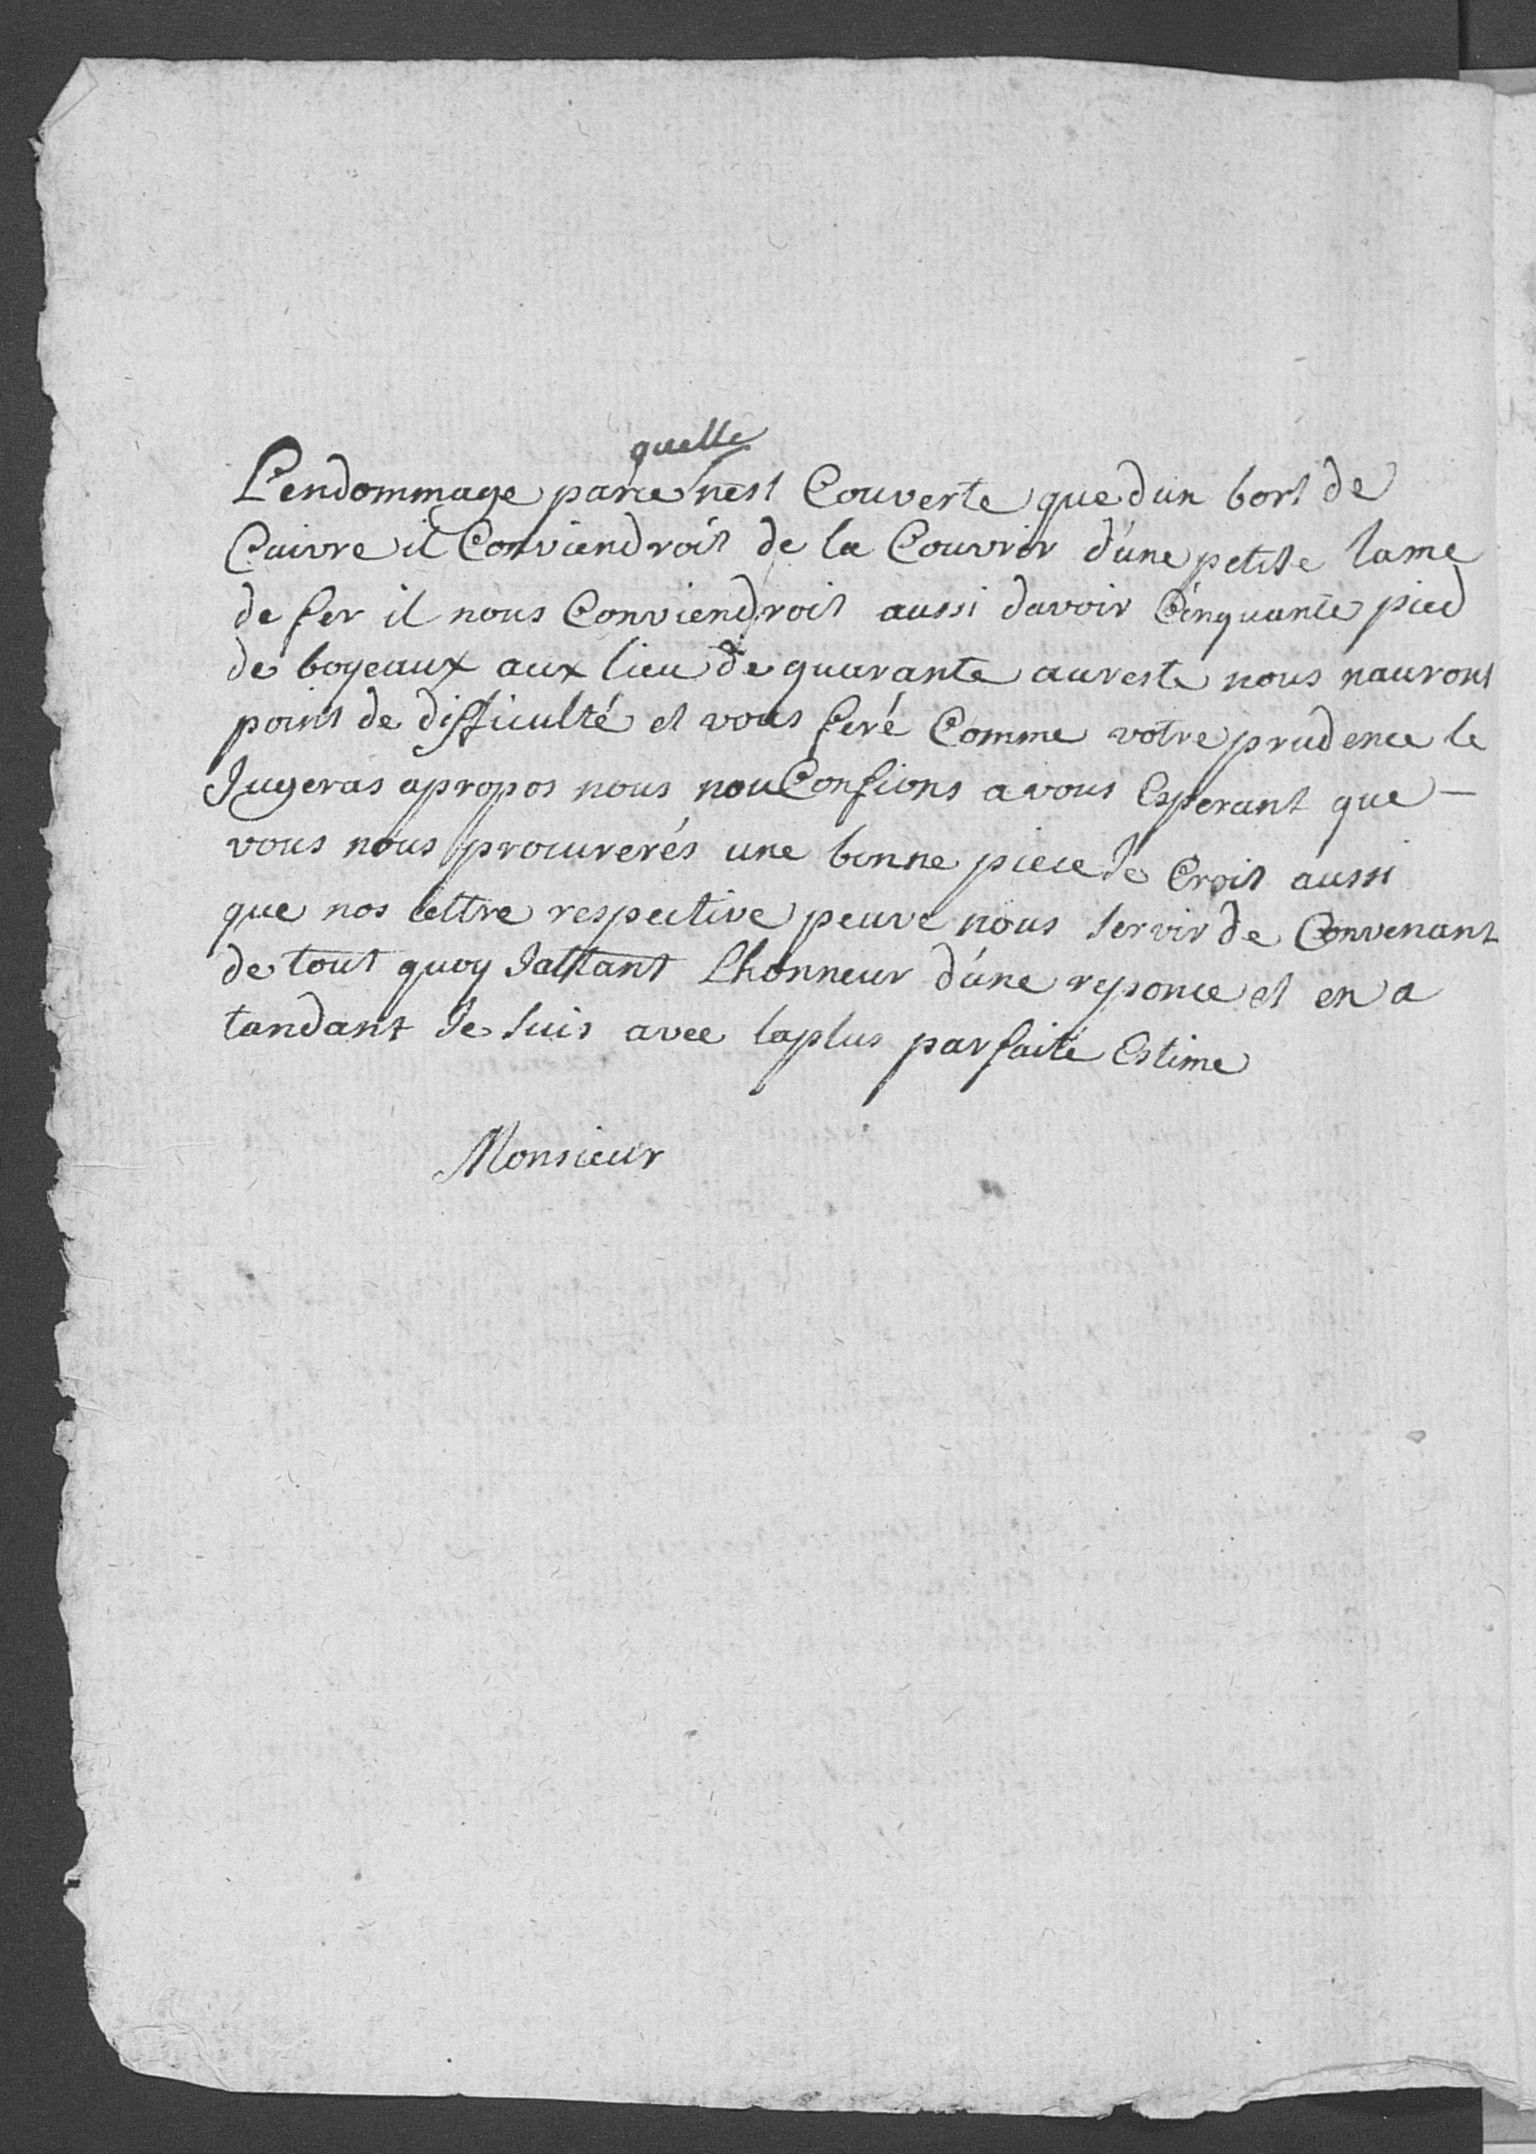 quelle
L'endommage parce nest Couverte que dun bort de
Cuivre il Conviendroit de la Couvrir d'une petite lame
de fer il nous Conviendroit aussi davoir Cinquante pied
de boyeaux aux lieu de quarante aureste nous naurons
point de difficulté et vous feré Comme votre prudence le
Jugeras apropos nous nou Confions a vous Esperant que –
vous nous procurerés une bonne piece Je Croit aussi
que nos lettre respective peuve nous servir de Convenant
de tout quoy Jattant Lhonneur d'une reponce et en a
tandant Je suis avec laplus parfaite Estime
Monsieur